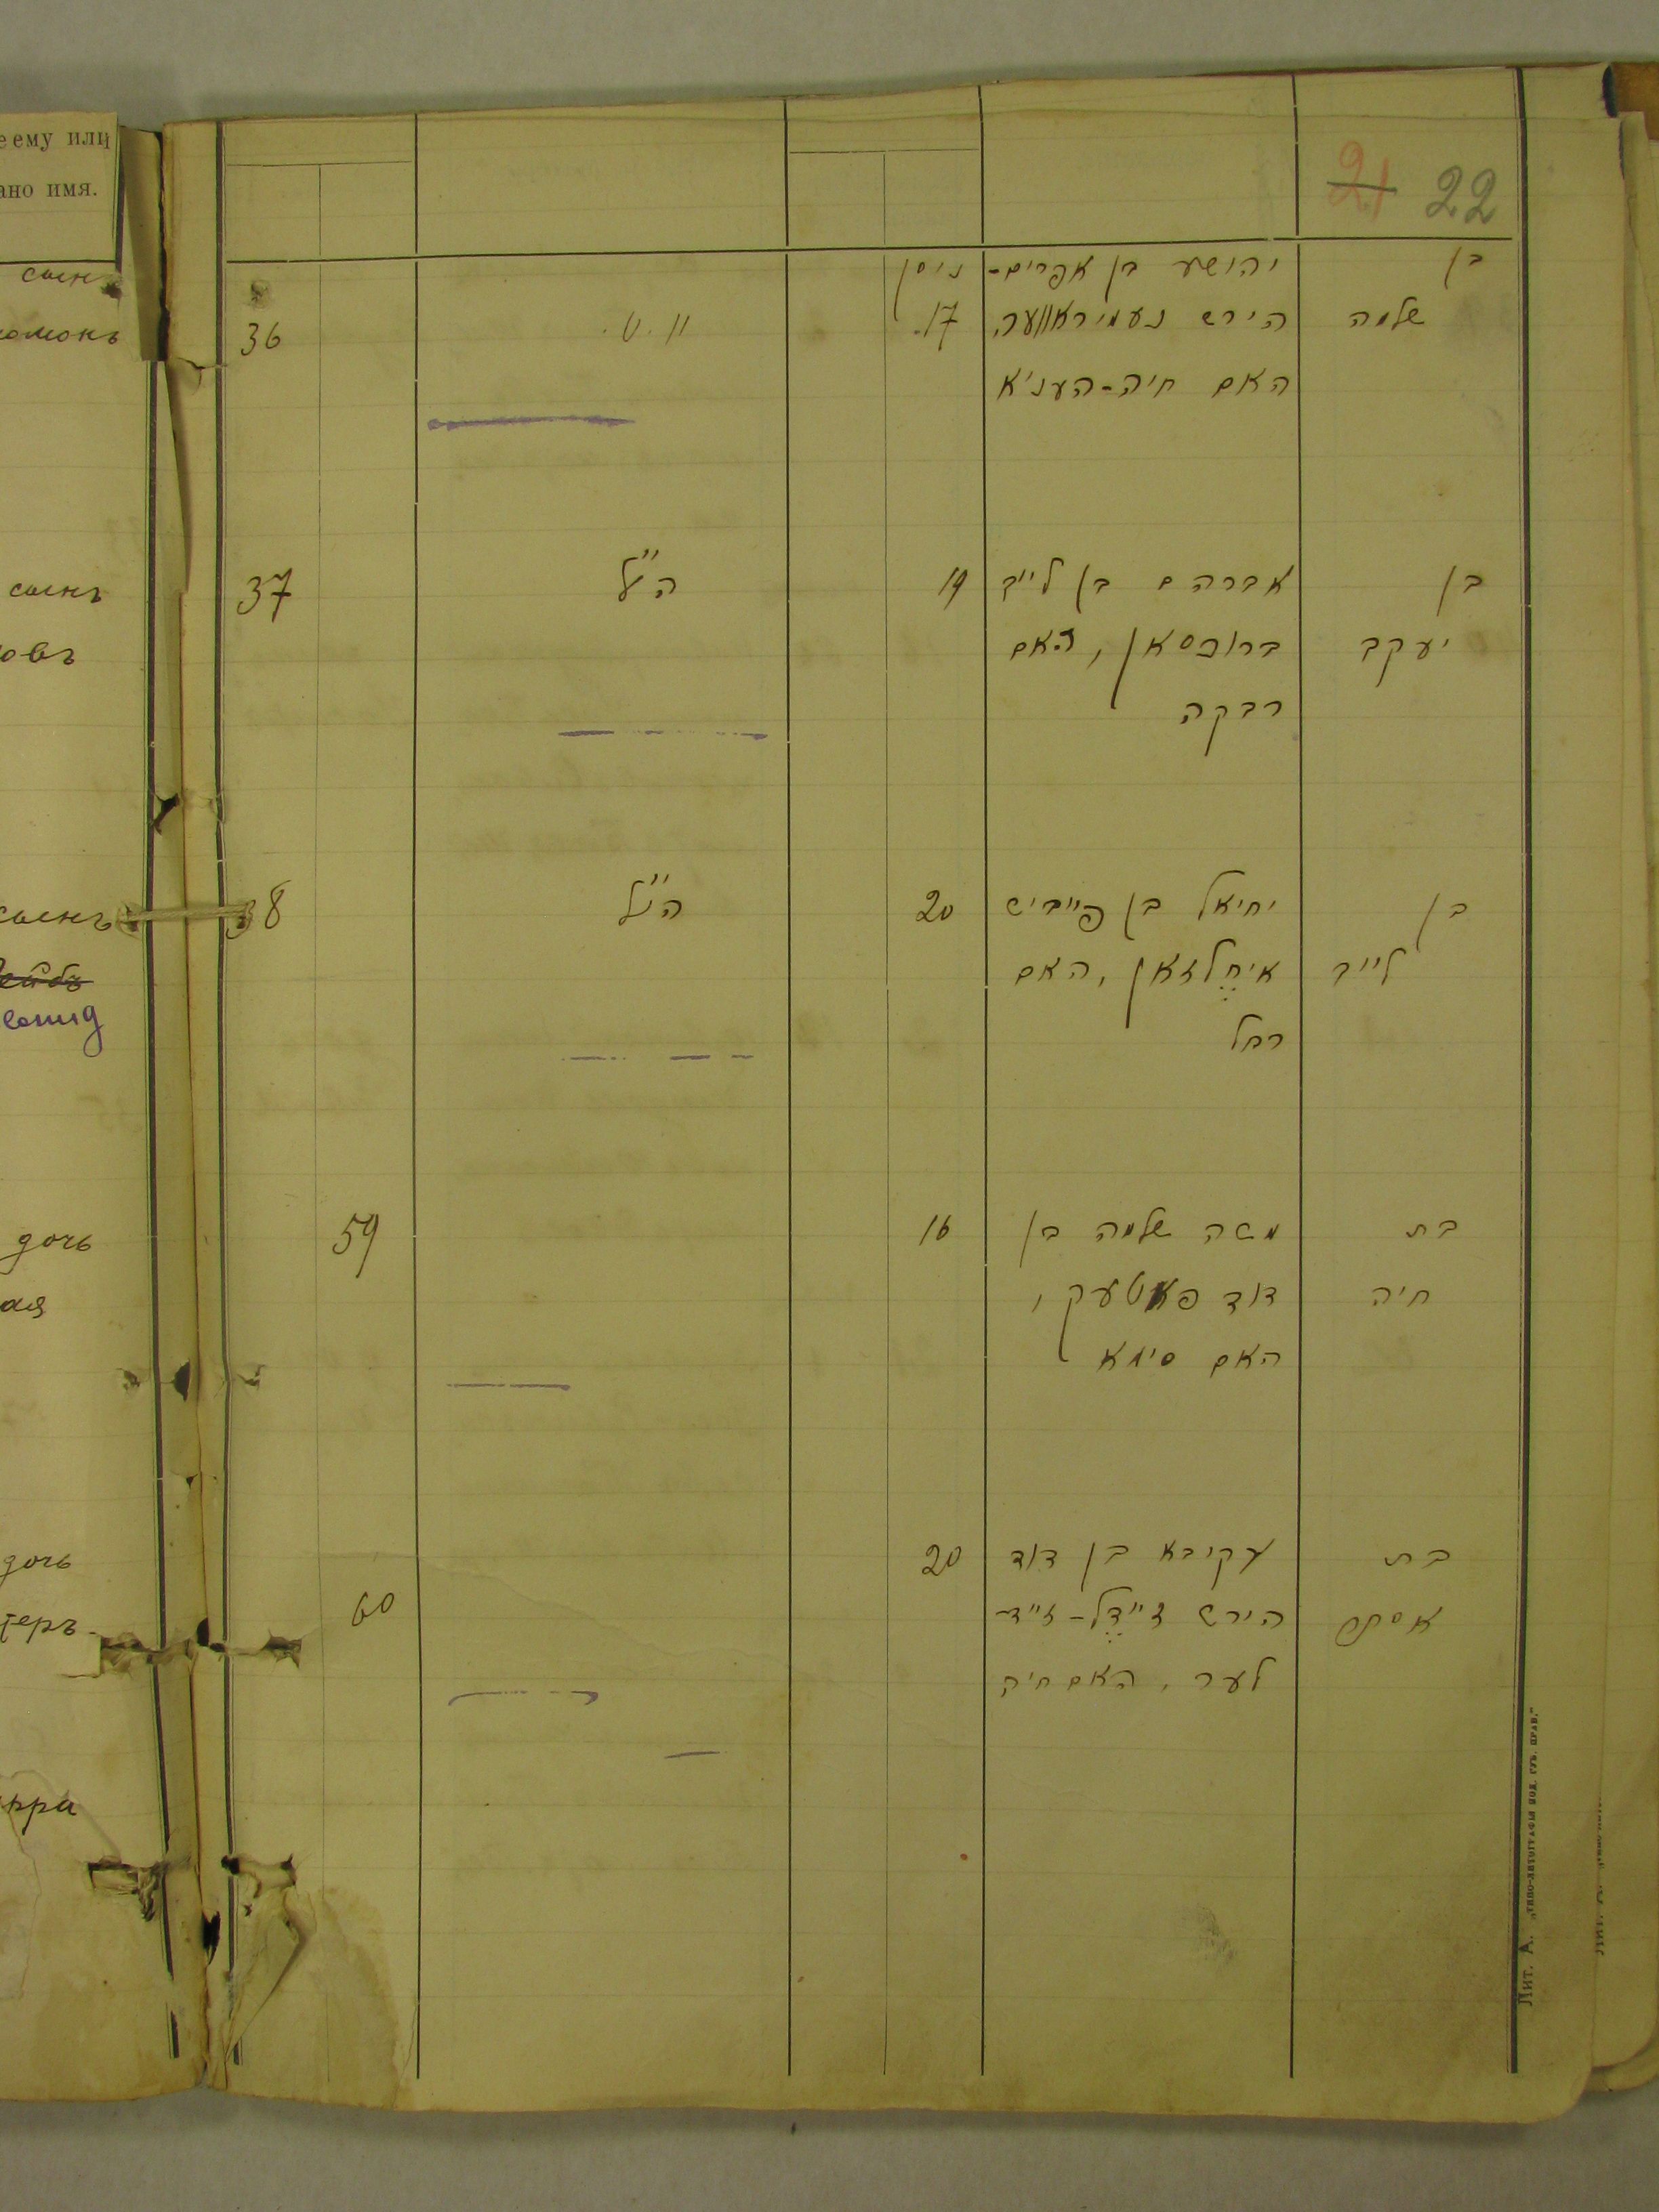 еему или
ано имя.
21 22
сынъ
ломонъ
36
וו. ט.
ניסן
17.
יהושע בן אפרים-
הירש נעמיראווער,
האם חיה-הענ'א
בן
שלמה
сынъ
овъ
37
הנ"ל
19
אברהם בן לייב
ברוכסאן, האם
רבקה
בן
יעקב
сынъ
38
הנ"ל
20
יחיאל בן פייביש
איחלזאן, האם
רחל
בן
לייב
дочь
ая
59
16
משה שלמה בן
דוד פאטעק,
האם סימא
בת
חיה
дочь
теръ
60
20
עקיבא בן דוד
הירש זיידל-זייד
לער, האם חיה
בת
אסתר
Лит. А. „ТИПО-ЛИТОГРАФІЯ ПОД. ГУБ. ПРАВ."